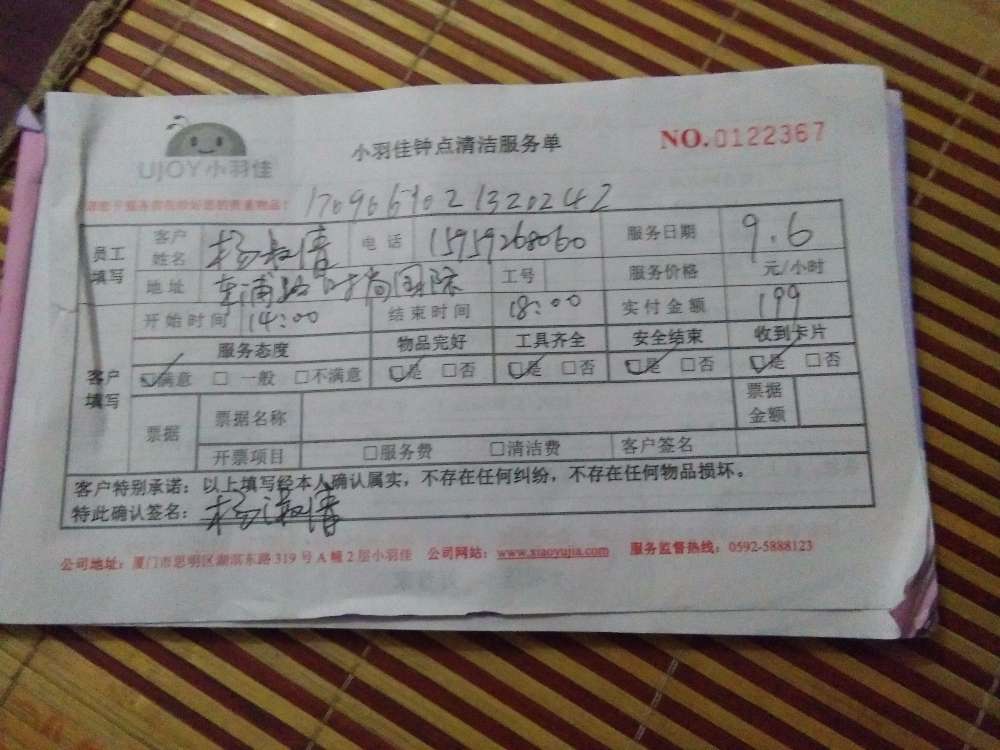 UJOY小羽佳
小羽佳钟点清洁服务单
NO.0122367
请您于服务前收好您的贵重物品:
员工填写 客户姓名 杨淑倩 电话 15959268060 服务日期 9.6
地址 东浦路时尚国际 工号 服务价格 元/小时
开始时间 14:00 结束时间 18:00 实付金额 199
客户填写 服务态度 物品完好 工具齐全 安全结束 收到卡片
☑满意 □ 一般 □不满意 ☑是 □否 ☑是 □否 ☑是 □否 ☑是 □否
票据 票据名称 票据金额
开票项目 □服务费 □清洁费 客户签名
客户特别承诺:以上填写经本人确认属实,不存在任何纠纷,不存在任何物品损坏。
特此确认签名: 杨淑倩
公司地址:厦门市思明区湖滨东路319号A幢2层小羽佳 公司网站:www.xiaoyujia.com 服务监督热线:0592-5888123